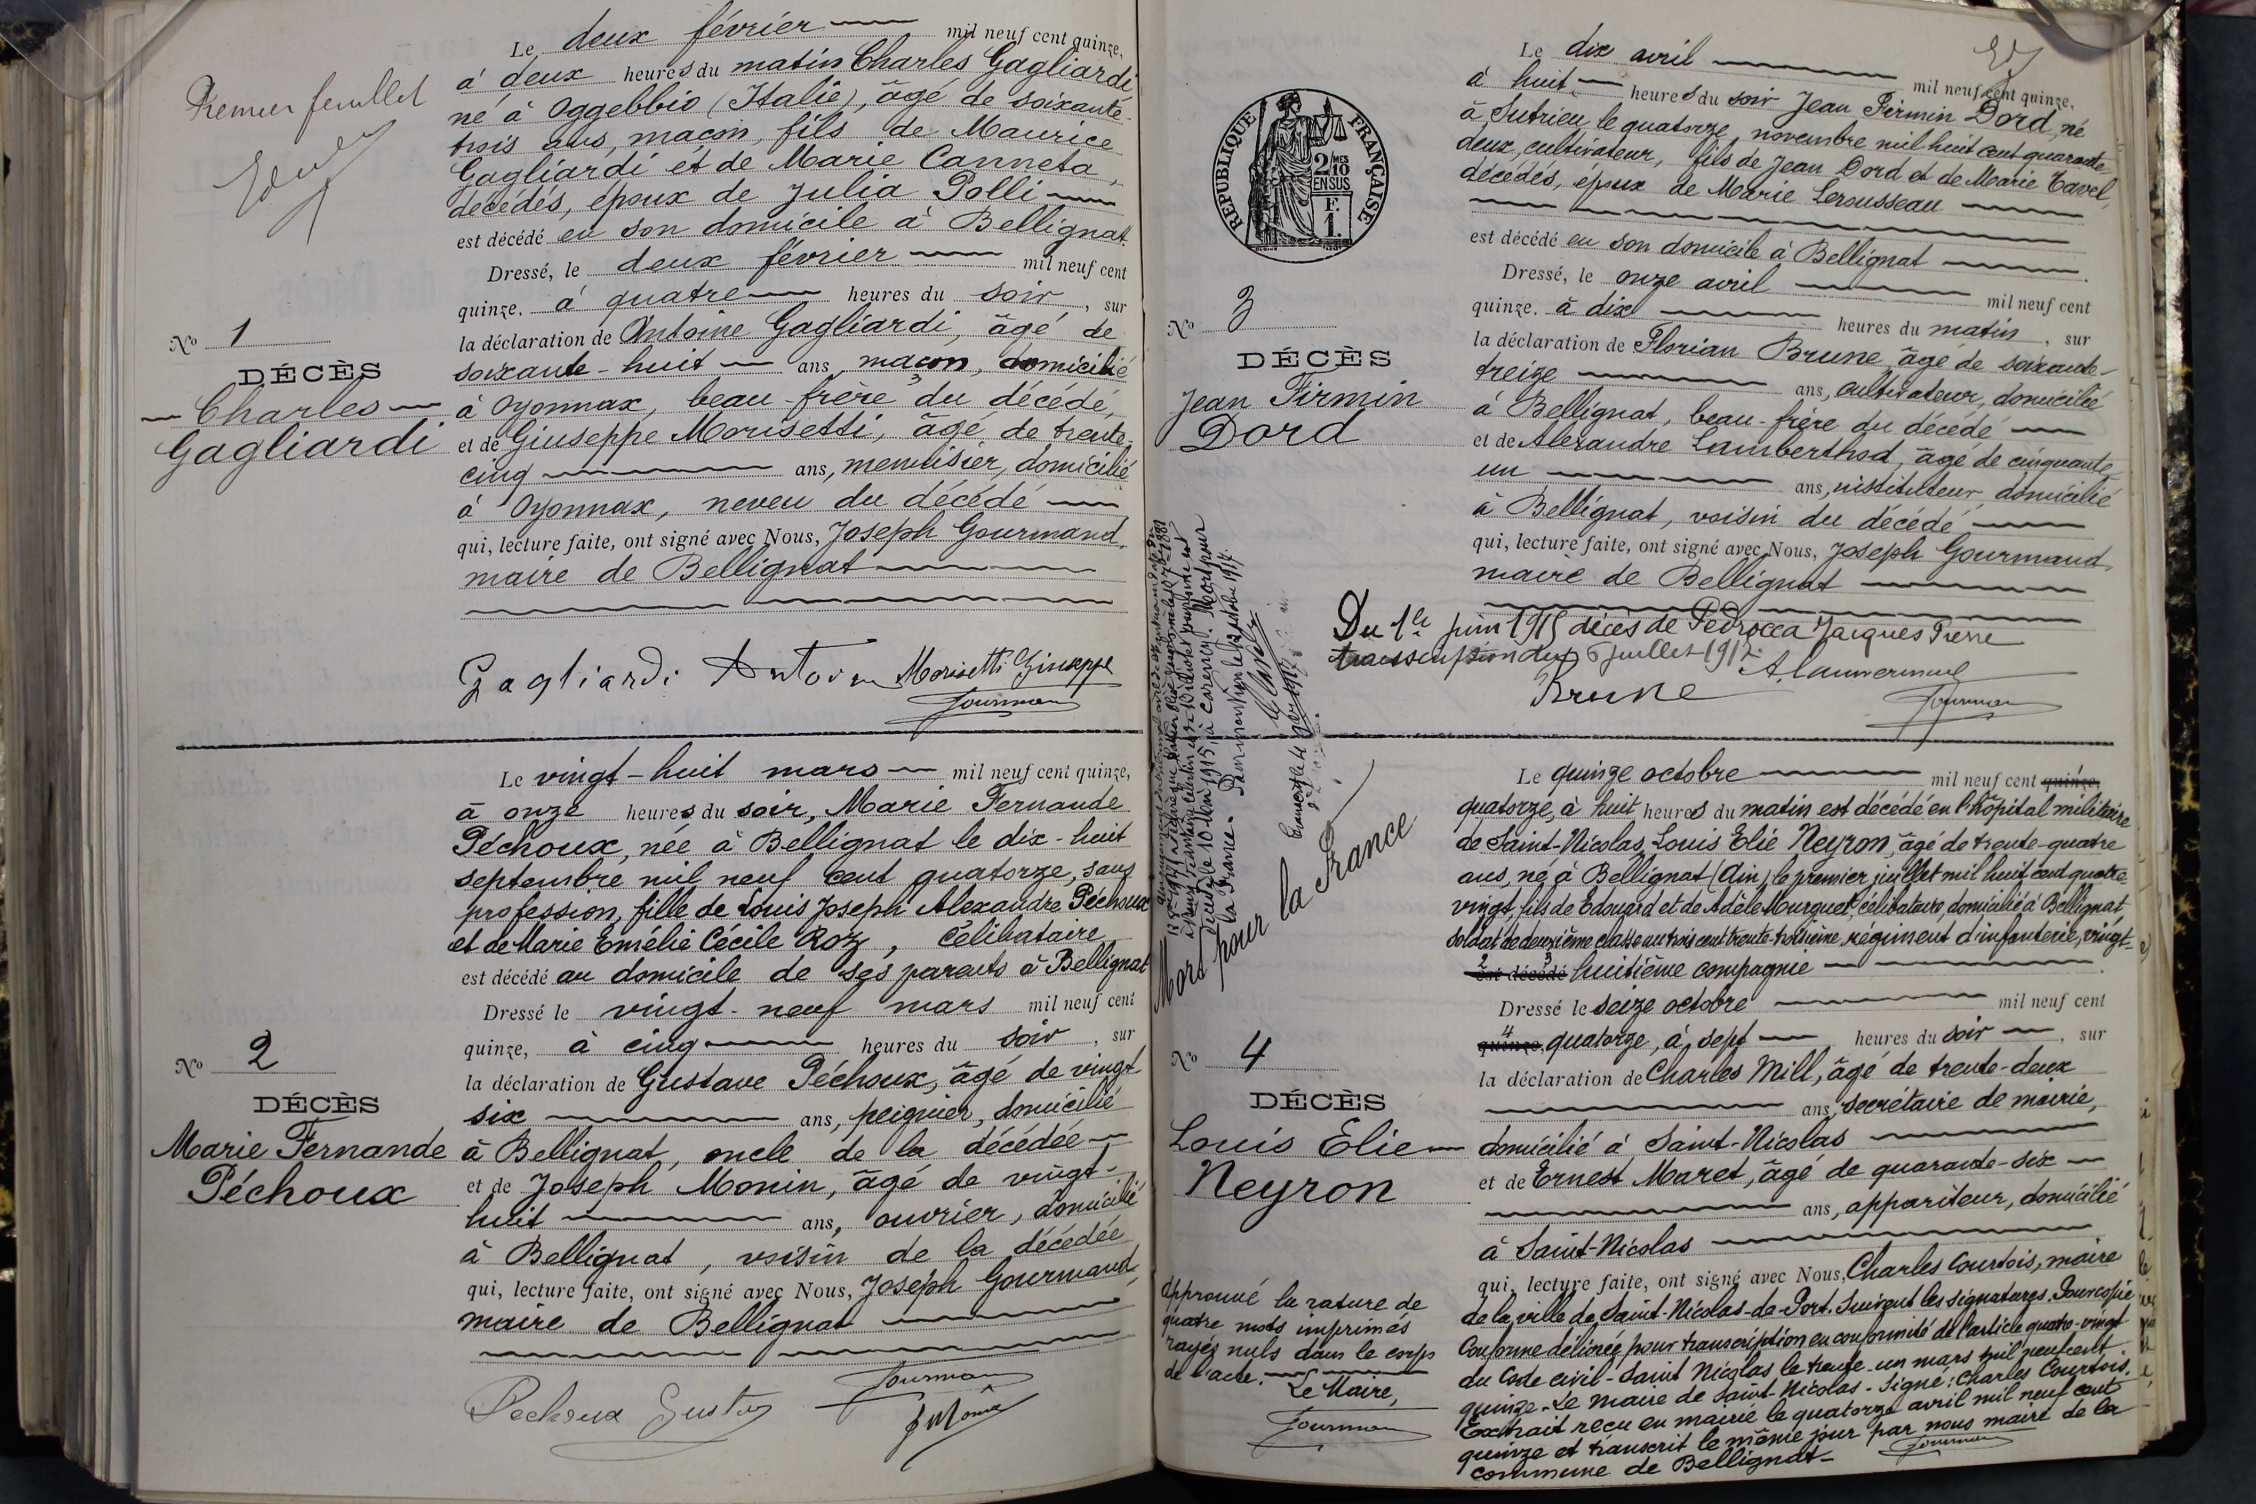 Premier feuillet
Le deux février mil neuf cent quinze,
à deux heures du matin Charles Gagliardi
né à Oggebbio (Italie), âgé de soixante-
trois ans, maçon, fils de Maurice
Gagliardi et de Marie Canneta,
décédés, époux de Julia Polli
est décédé en son domicile à Bellignat.
Dressé, le deux février mil neuf cent
quinze. à quatre heures du soir, sur
la déclaration de Antoine Gagliardi, âgé de
soixante-huit ans, maçon, domicilié
à Oyonnax, beau-frère du décédé,
et de Giuseppe Morisetti, âgé de trente-
cinq ans, menuisier, domicilié
à Oyonnax, neveu du décédé
qui, lecture faite, ont signé avec Nous, Joseph Gourmand,
maire de Bellignat
No 1
DÉCÈS
Charles
Gagliardi
Gagliardi Antoine Morisetti Giuseppe
Gourmand
Le vingt-huit mars mil neuf cent quinze,
à onze heures du soir, Marie Fernande
Péchoux, née à Bellignat le dix-huit
septembre mil neuf cent quatorze, sans
profession, fille de Louis Joseph Alexandre Péchoux
et de Marie Emélie Cécile Roz, Célibataire
est décédé au domicile de ses parents à Bellignat
Dressé le vingt-neuf mars mil neuf cent
quinze, à cinq heures du soir, sur
la déclaration de Gustave Péchoux, âgé de vingt
six ans, peignier, domicilié
à Bellignat, oncle de la décédée
et de Joseph Monin, âgé de vingt-
huit ans, ouvrier, domicilié
à Bellignat, voisin de la décédée
qui, lecture faite, ont signé avec Nous, Joseph Gourmand,
maire de Bellignat
No 2
DÉCÈS
Marie Fernande
Péchoux
Pechoux Gustav
Gourmand
J Monin
RÉPUBLIQUE FRANÇAISE
2 MES
10
EN SUS
F.
1.
Le dix avril mil neuf cent quinze,
à huit heures du soir Jean Firmin Dord, né
à Sutrieu le quatorze novembre mil huit cent quarante-
deux, cultivateur, fils de Jean Dord et de Marie Tavel,
décédés, époux de Marie Lerousseau
est décédé en son domicile à Bellignat
Dressé, le onze avril mil neuf cent
quinze. à dix heures du matin, sur
la déclaration de Florian Brune, âgé de soixante-
treize ans, cultivateur, domicilié
à Bellignat, beau-frère du décédé
et de Alexandre Lamberthod, âgé de cinquante
un ans, instituteur, domicilié
à Bellignat, voisin du décédé
qui, lecture faite, ont signé avec Nous, Joseph Gourmand,
maire de Bellignat
No 3
DÉCÈS
Jean Firmin
Dord
Du 1er juin 1915 décès de Pedrocca Jacques Pierre
transcription du 6 juillet 1917.
Brune
Gourmand
Mort pour la France
Le quinze octobre mil neuf cent quinze,
quatorze, à huit heures du matin est décédé en l'hôpital militaire
de Saint-Nicolas, Louis Elie Neyron, âgé de trente-quatre
ans, né à Bellignat (Ain) le premier juillet mil huit cent quatre-
vingt, fils de Edouard et de Adèle Murguet, célibataire, domicilié à Bellignat,
soldat de deuxième classe au trois cent trente-troisième régiment d'infanterie, vingt-
2 3
est décédé huitième compagnie
Dressé le seize octobre mil neuf cent
4
quinze, quatorze, à sept heures du soir, sur
la déclaration de Charles Mill, âgé de trente-deux
ans, secrétaire de mairie,
domicilié à Saint-Nicolas
et de Ernest Maret, âgé de quarante-six
ans, appariteur, domicilié
à Saint-Nicolas
qui, lecture faite, ont signé avec Nous, Charles Courtois, maire
de la ville de Saint-Nicolas-de-Port. Suivent les signatures. Pour copie
conforme délivrée pour transcription en conformité de l'article quatre-vingt
du Code civil - Saint Nicolas, le trente-un mars mil neuf cent
quinze. Le maire de Saint-Nicolas - Signé: Charles Courtois.
Extrait reçu en mairie le quatorze avril mil neuf cent
quinze et transcrit le même jour par nous maire de la
commune de Bellignat
Gourmand
No 4
DÉCÈS
Louis Elie
Neyron
Approuvé la rature de
quatre mots imprimés
rayés nuls dans le corps
de l'acte.
Le Maire,
Gourmand